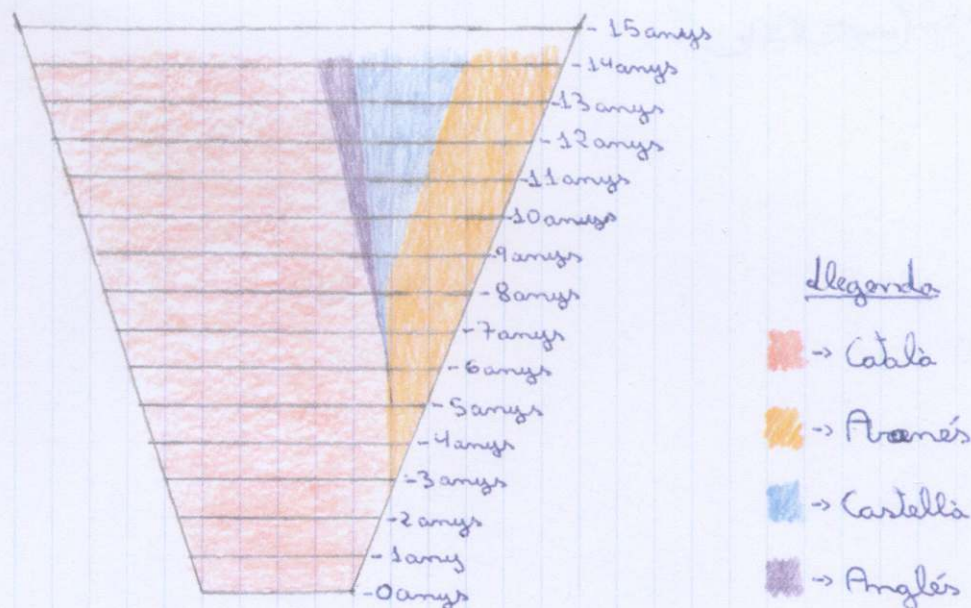 - 15 anys
- 14 anys
- 13 anys
- 12 anys
- 11 anys
- 10 anys
- 9 anys
- 8 anys
- 7 anys
- 6 anys
- 5 anys
- 4 anys
- 3 anys
- 2 anys
- 1 any
- 0 anys
Llegenda
→ Català
→ Aranés
→ Castellà
→ Anglés